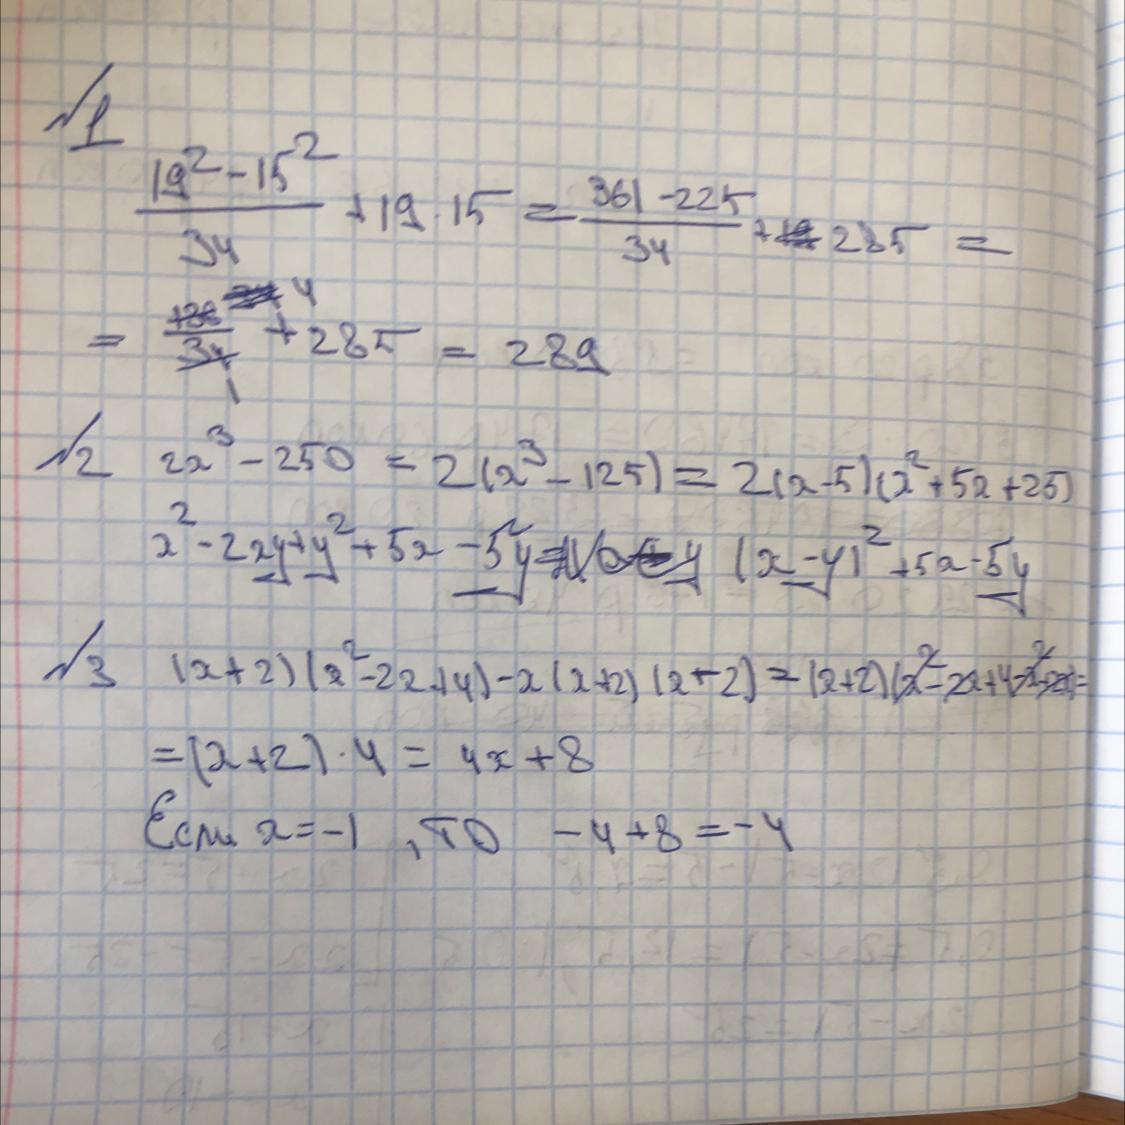 №1
(19² - 15²)/34 + 19 · 15 = (361 - 225)/34 + 285 =
= 136/34 + 285 = 289
№2 2x³ - 250 = 2(x³ - 125) = 2(x-5)(x² + 5x + 25)
x² - 2xy + y² + 5x - 5y = (x - y)² + 5x - 5y
№3 (x+2)(x² - 2x + 4) - x(x+2)(x - 2) = (x+2)(x² - 2x + 4 - x² + 2x) =
= (x+2) · 4 = 4x + 8
Если x = -1 , то -4 + 8 = -4